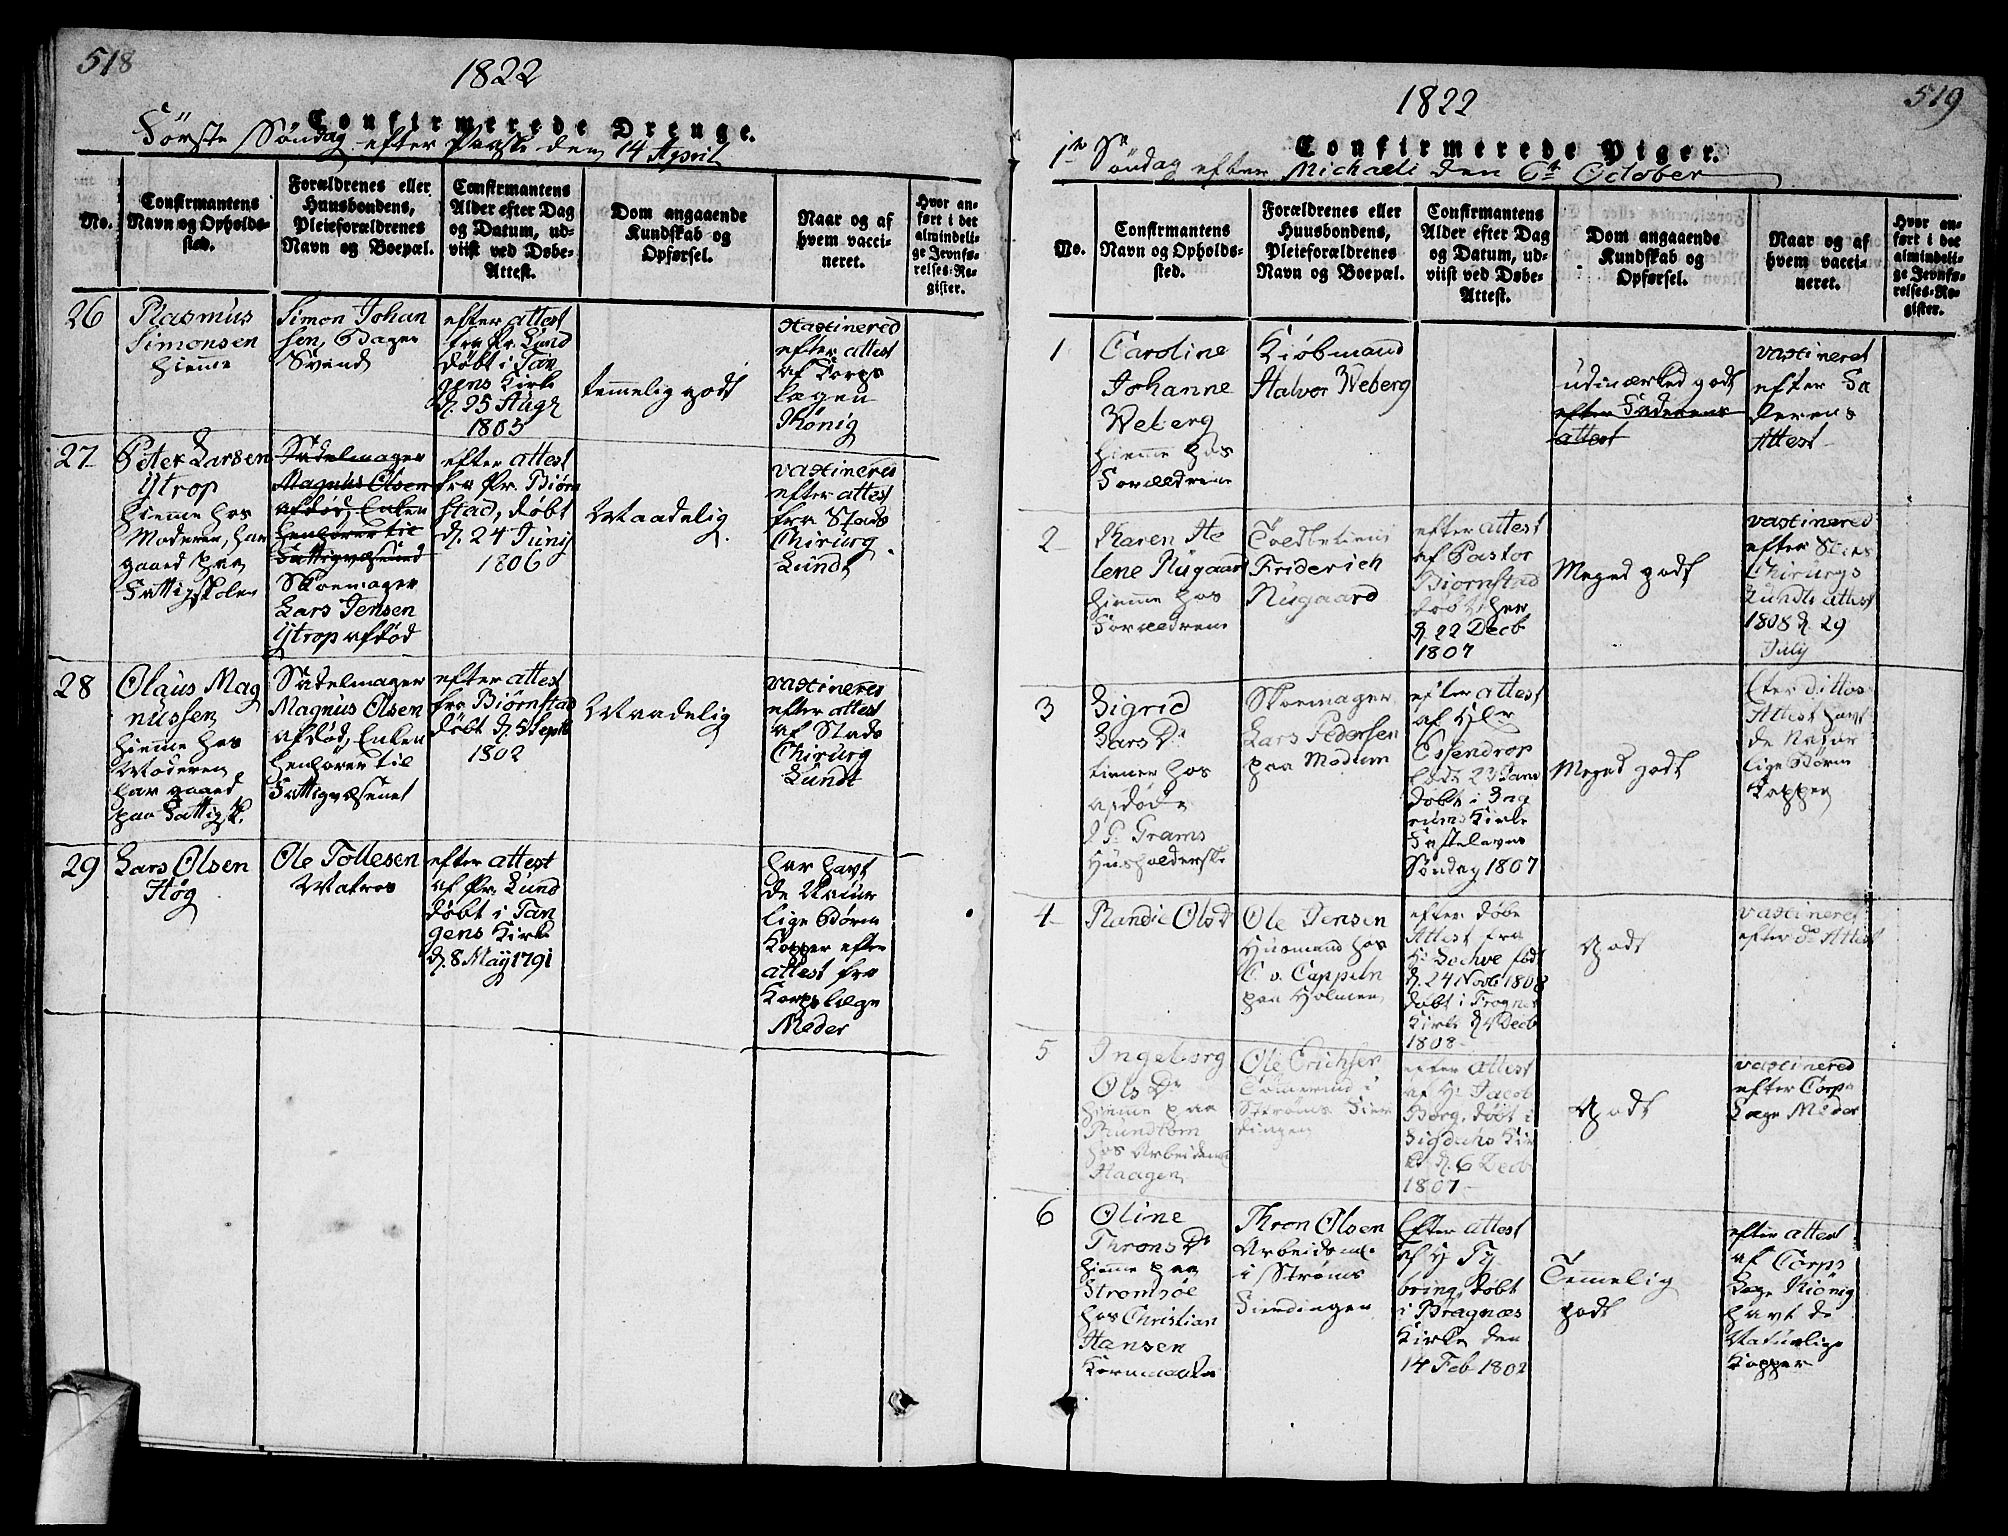 518
1822
Confirmerede Drenge.
Første Søndag efter Paaske den 14 April
No.
Confirmantens
Navn og Opholds-
sted.
Forældrenes eller
Huusbondens,
Pleieforældrenes
Navn og Boepæl.
Confirmantens
Alder efter Dag
og Datum, ud-
viist ved Døbe-
Attest.
Dom angaaende
Kundskab og
Opførsel.
Naar og af
hvem vacci-
neret.
Hvor an-
ført i det
almindeli-
ge Jevnfø-
relses-Re-
gister.
26
Rasmus
Simonsen
hiemme
Simon Johan
sen, Bager
Svend
efter attest
fra Pr. Lund
døbt i Tan
gens Kirke
d. 25 Augs
1805
temmelig godt
vaxinered
efter attest
af Corps
Lægen
König
27
Peter Larsen
Ytrop
hiemme hos
Moderen, har
gaaed paa
Fattigskolen
Sadelmager
Magnus Olsen
afdød, Enken
henhører til
Fattigvæsened
Skoemager
Lars Jensen
Ytrop afdød
efter attest
fra Pr. Biørn
stad, døbt
d. 24 Juny
1806
Maadelig
vaxineret
efter attest
fra Stads
Chirurg
Lundt
28
Olaus Mag
nussen
hiemme hos
Moderen,
har gaaed
paa Fattigsk.
Sadelmager
Magnus Olsen
afdød, Enken
henhører til
Fattigvæsenet
efter attest
fra Biørnstad
døbt d. 5 Septb
1802
Maadelig
vaxineret
efter attest
af Stads
Chirurg
Lundt
29
Lars Olsen
Høg
Ole Tollesen
Matros
efter attest
af Pr. Lund
døbt i Tan
gens Kirke
d. 8 May 1791
har havt
de Natur
lige Børne
Kopper efter
attest fra
Korpslæge
Møder
519
1822
Confirmerede Piger.
1te Søndag efter Michaeli den 6te October
No.
Confirmantens
Navn og Opholds-
sted.
Forældrenes eller
Huusbondens,
Pleieforældrenes
Navn og Boepæl.
Confirmantens
Alder efter Dag
og Datum, ud-
viist ved Døbe-
Attest.
Dom angaaende
Kundskab og
Opførsel.
Naar og af
hvem vacci-
neret.
Hvor an-
ført i det
almindeli-
ge Jevnfø-
relses-Re-
gister.
1
Caroline
Johanne
Weberg
hiemme hos
Forældrene
Kiøbmand
Halvor Weberg
udmærked godt
efter Faderens
attest
vaxineret
efter Fa
derens
Attest
2
Karen He
lene Rugaard
hiemme hos
Forældrene
Toldbetient
Friderich
Rugaard
efter attest
af Pastor
Biørnstad
døbt her
d. 22 Decb
1807
Meged godt
vaxinered
efter Stads
Chirurgs
Lundts attest
1808 d. 29
July
3
Sigrid
Lars Dr
tiener hos
afdøde
Grams
Husholderske
Skoemager
Lars Pedersen
paa Modum
efter attest
af Hr
Essendrop
født 23 Jan
døbt i
Kirke
Fastelavns
Søndag 1807
Meged godt
Efter dittos
Attest havt
de Natur
lige Børne
Kopper
4
Randie Ols Dr
Ole Jensen
Husmand hos
C. v. Cappeln
paa Holmen
efter døbe
Attest fra
født
d. 24 Novb 1808
døbt i Frogner
Kirke d. 4 Decb
1808
Godt
vaxineret
efter do Attest
5
Ingeborg
Ols Dr
hiemme paa
Rundtom
hos Arbeidsmd
Haagen
Ole Erichsen
i
Strøms Fier
dingen
efter attest
af Hr Jacob
Borg, døbt i
Sigdahs Kir
ke d. 6 Decb
1807
Godt
vaxinered
efter Corps
Læge Møder
6
Oline
Throns Dr
hiemme paa
Strømsøe
hos Christian
Hansen
Thron Olsen
Arbeidsmd.
i Strøms
Fierdingen
Efter attest
af Hr Ty
bring, døbt
i Bragnæs
Kirke den
14 Feb 1802
Temmelig
godt
efter attest
af Corps
Læge Kiönig
havt de
Naturlige
Kopper